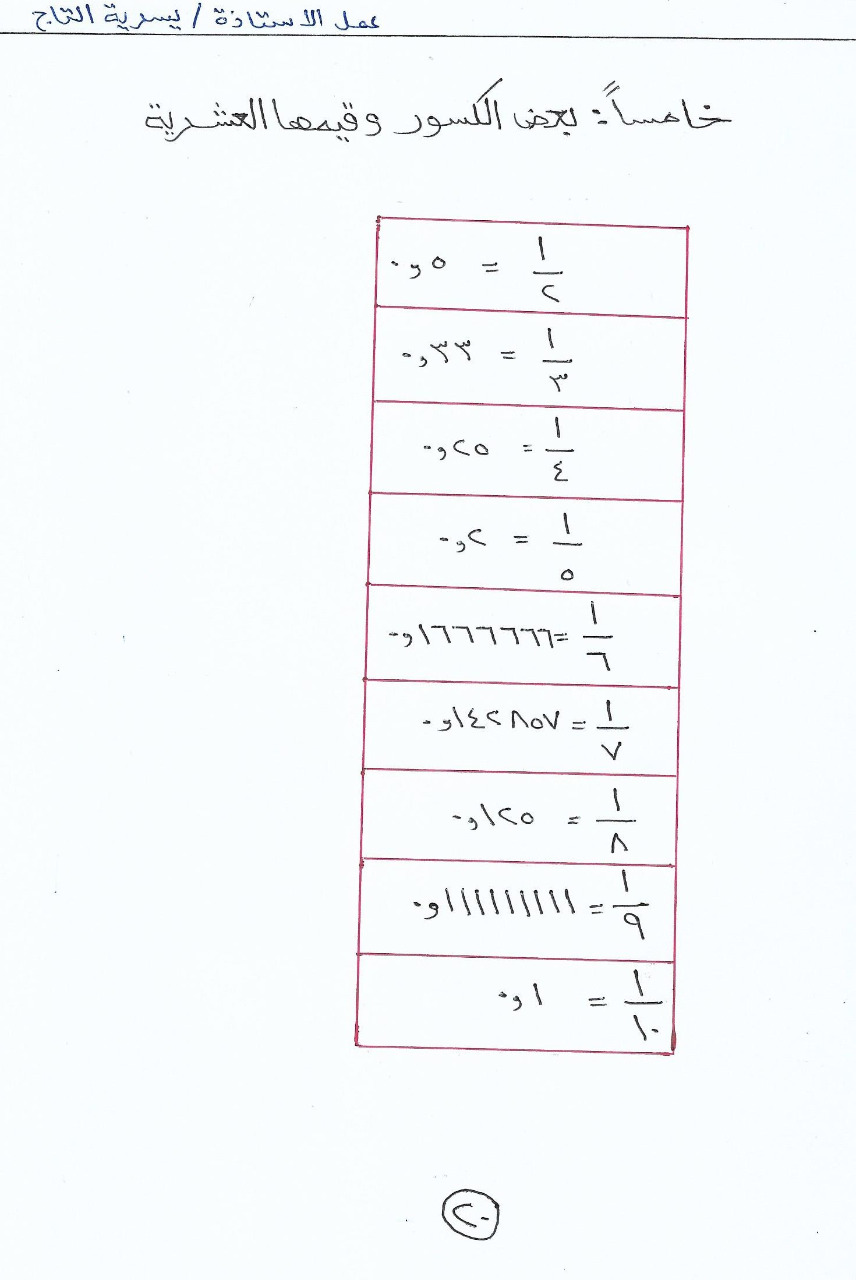 عمل الاستاذة / يسرية التاج
خامساً: بعض الكسور وقيمها العشرية
١/٢ = ٠,٥
١/٣ = ٠,٣٣
١/٤ = ٠,٢٥
١/٥ = ٠,٢
١/٦ = ٠,١٦٦٦٦٦٦
١/٧ = ٠,١٤٢٨٥٧
١/٨ = ٠,١٢٥
١/٩ = ٠,١١١١١١١١١
١/١٠ = ٠,١
٢٠